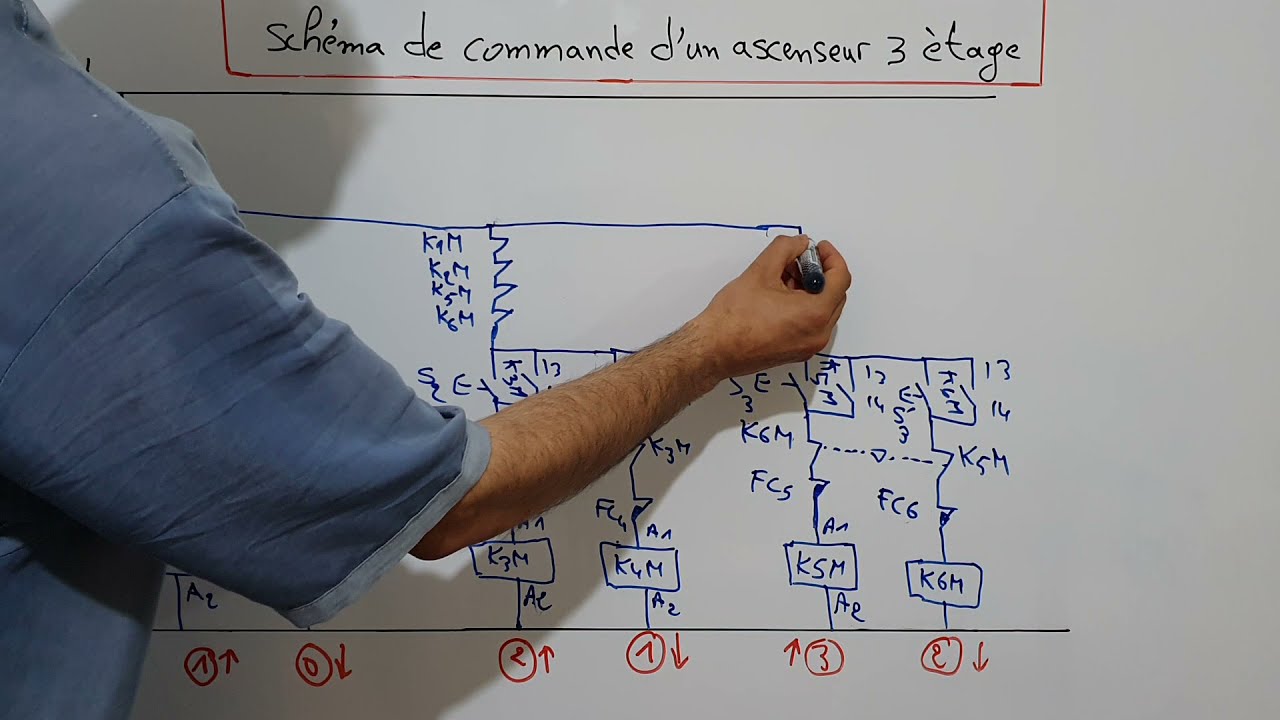 Schéma de commande d'un ascenseur 3 ètage
K1M
K2M
K5M
K6M
S2 E 13
S3 E 13
14
E S'3 13
14
K3M
K6M
K5M
FC4
FC5
FC6
A1
A1
A1
K3M
K4M
K5M
K6M
A2
A2
A2
A2
1↑
0↓
2↑
1↓
↑3
2↓